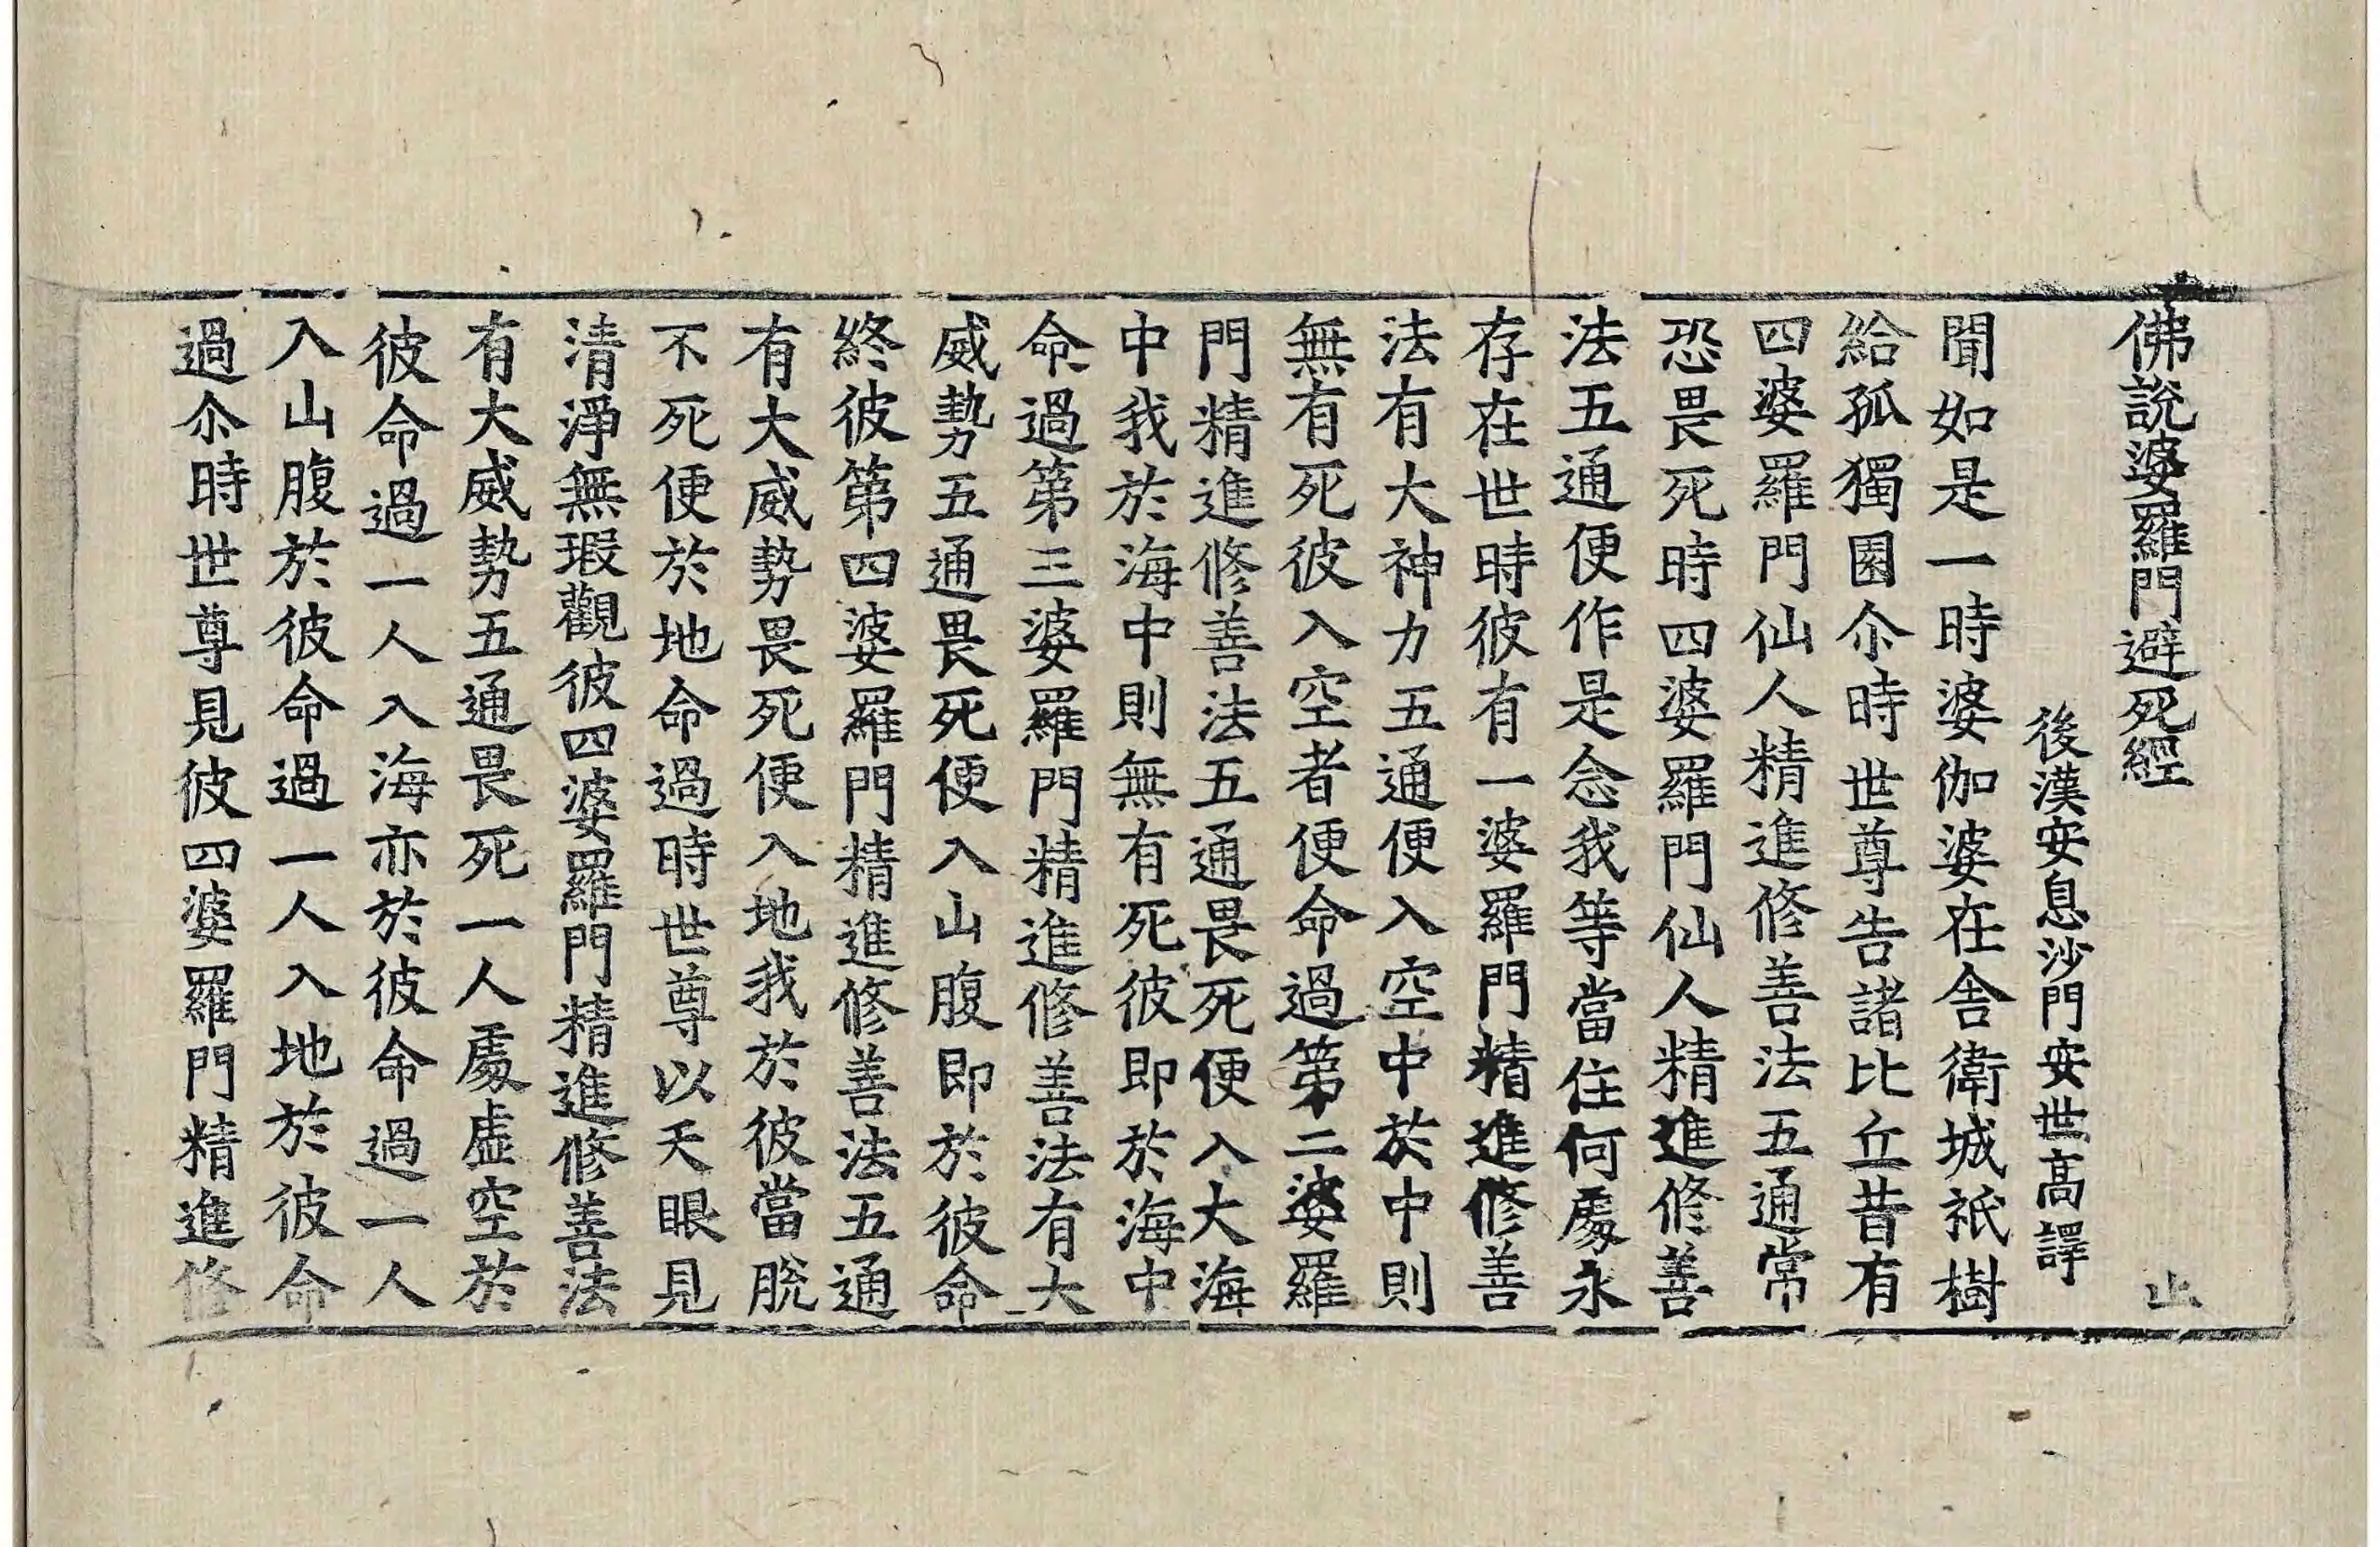 佛說婆羅門避死經
止
後漢安息沙門安世高譯
聞如是一時婆伽婆在舍衛城祇樹
給孤獨園尒時世尊告諸比丘昔有
四婆羅門仙人精進修善法五通常
恐畏死時四婆羅門仙人精進修善
法五通便作是念我等當住何處永
存在世時彼有一婆羅門精進修善
法有大神力五通便入空中於中則
無有死彼入空者便命過第二婆羅
門精進修善法五通畏死便入大海
中我於海中則無有死彼即於海中
命過第三婆羅門精進修善法有大
威勢五通畏死便入山腹即於彼命
終彼第四婆羅門精進修善法五通
有大威勢畏死便入地我於彼當脫
不死便於地命過時世尊以天眼見
清淨無瑕觀彼四婆羅門精進修善法
有大威勢五通畏死一人處虛空於
彼命過一人入海亦於彼命過一人
入山腹於彼命過一人入地於彼命
過尒時世尊見彼四婆羅門精進修